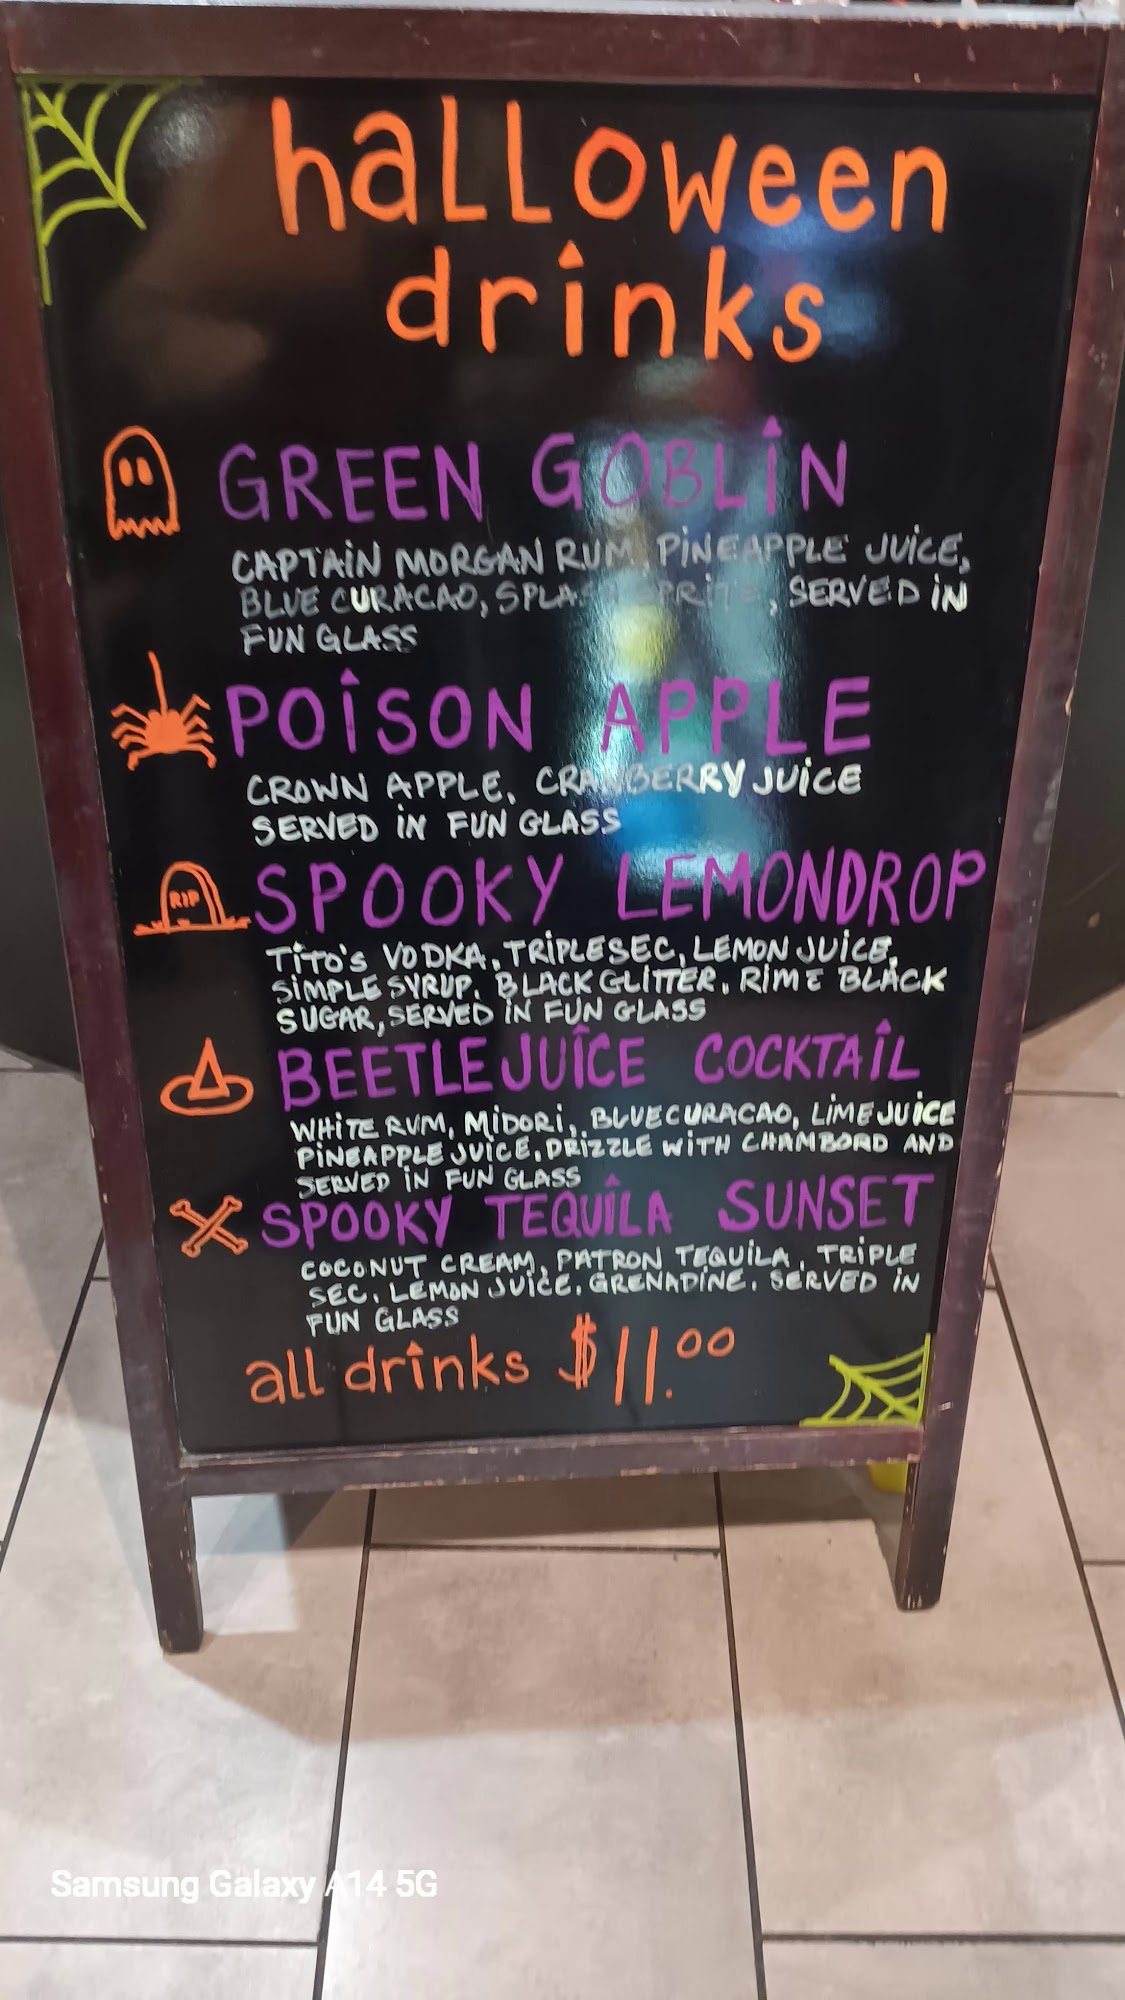 halloween
drinks
GREEN GOBLIN
CAPTAIN MORGAN RUM, PINEAPPLE JUICE,
BLUE CURACAO, SPLASH SPRITE, SERVED IN
FUN GLASS
POISON APPLE
CROWN APPLE, CRANBERRY JUICE
SERVED IN FUN GLASS
RIP
SPOOKY LEMONDROP
TITO'S VODKA, TRIPLE SEC, LEMON JUICE,
SIMPLE SYRUP, BLACK GLITTER, RIM E BLACK
SUGAR, SERVED IN FUN GLASS
BEETLEJUICE COCKTAIL
WHITE RUM, MIDORI, BLUE CURACAO, LIME JUICE
PINEAPPLE JUICE, DRIZZLE WITH CHAMBORD AND
SERVED IN FUN GLASS
SPOOKY TEQUILA SUNSET
COCONUT CREAM, PATRON TEQUILA, TRIPLE
SEC, LEMON JUICE, GRENADINE, SERVED IN
FUN GLASS
all drinks $11.00
Samsung Galaxy A14 5G